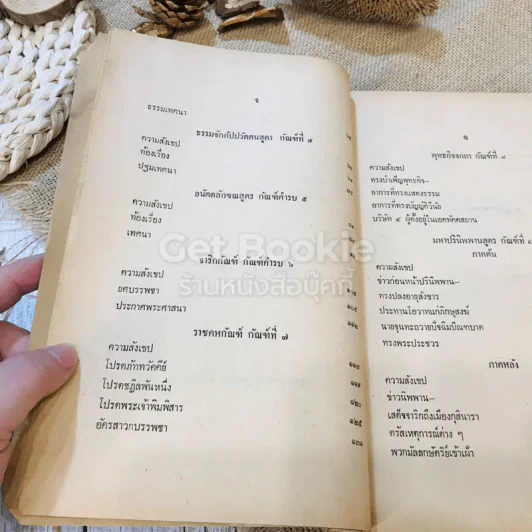 จ
ธรรมเทศนา
ธรรมจักกัปปวัตตนสูตร กัณฑ์ที่ ๔
ความสังเขป
ท้องเรื่อง
ปฐมเทศนา
อนัตตลักขณสูตร กัณฑ์คำรบ ๕
ความสังเขป
ท้องเรื่อง
เทศนา
จาริกกัณฑ์ กัณฑ์คำรบ ๖
ความสังเขป
ยศบรรพชา
ประกาศพระศาสนา
ราชคหกัณฑ์ กัณฑ์ที่ ๗
ความสังเขป
โปรดภัททวัคคีย์ ๑๑๗
โปรดชฎิลพันหนึ่ง ๑๑๘
โปรดพระเจ้าพิมพิสาร ๑๒๐
อัครสาวกบรรพชา ๑๒๕
๑๓๑
ฉ
พุทธกิจจกถา กัณฑ์ที่ ๘
ความสังเขป
ทรงบำเพ็ญพุทธกิจ-
อาการที่ทรงแสดงธรรม
อาการที่ทรงบัญญัติวินัย
บริษัท ๔ ผู้ตั้งอยู่ในเอตทัคคสถาน
มหาปรินิพพานสูตร กัณฑ์ที่
ภาคต้น
ความสังเขป
ข่าวก่อนหน้าปรินิพพาน-
ทรงปลงอายุสังขาร
ประทานโอวาทแก่ภิกษุสงฆ์
นายจุนทะถวายปัจฉิมบิณฑบาต
ทรงพระประชวร
ภาคหลัง
ความสังเขป
ข่าวนิพพาน-
เสด็จจาริกถึงเมืองกุสินารา
ตรัสเหตุการณ์ต่าง ๆ
พวกมัลลกษัตริย์เข้าเฝ้า
Get Bookie
ร้านหนังสือบุ๊คกี้